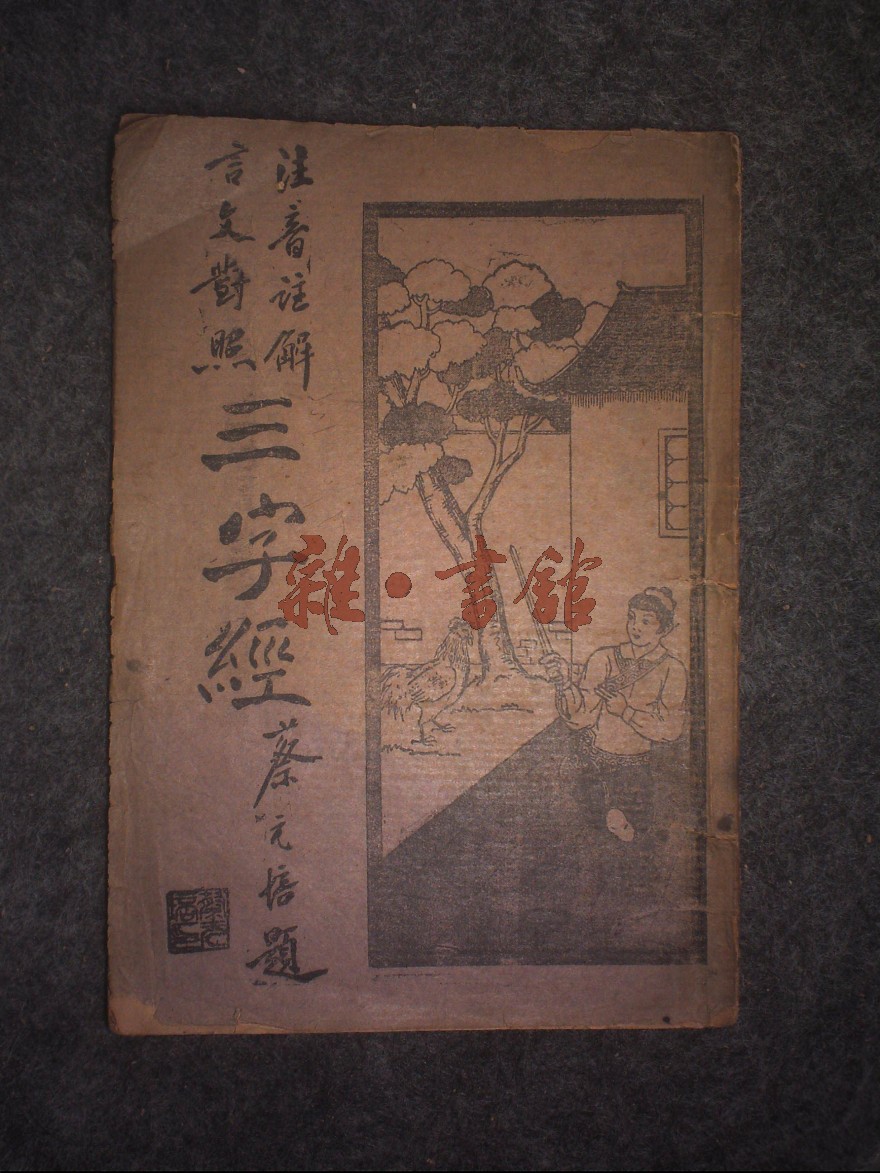 注音註解
言文對照
三字經
蔡元培題
雜·書館